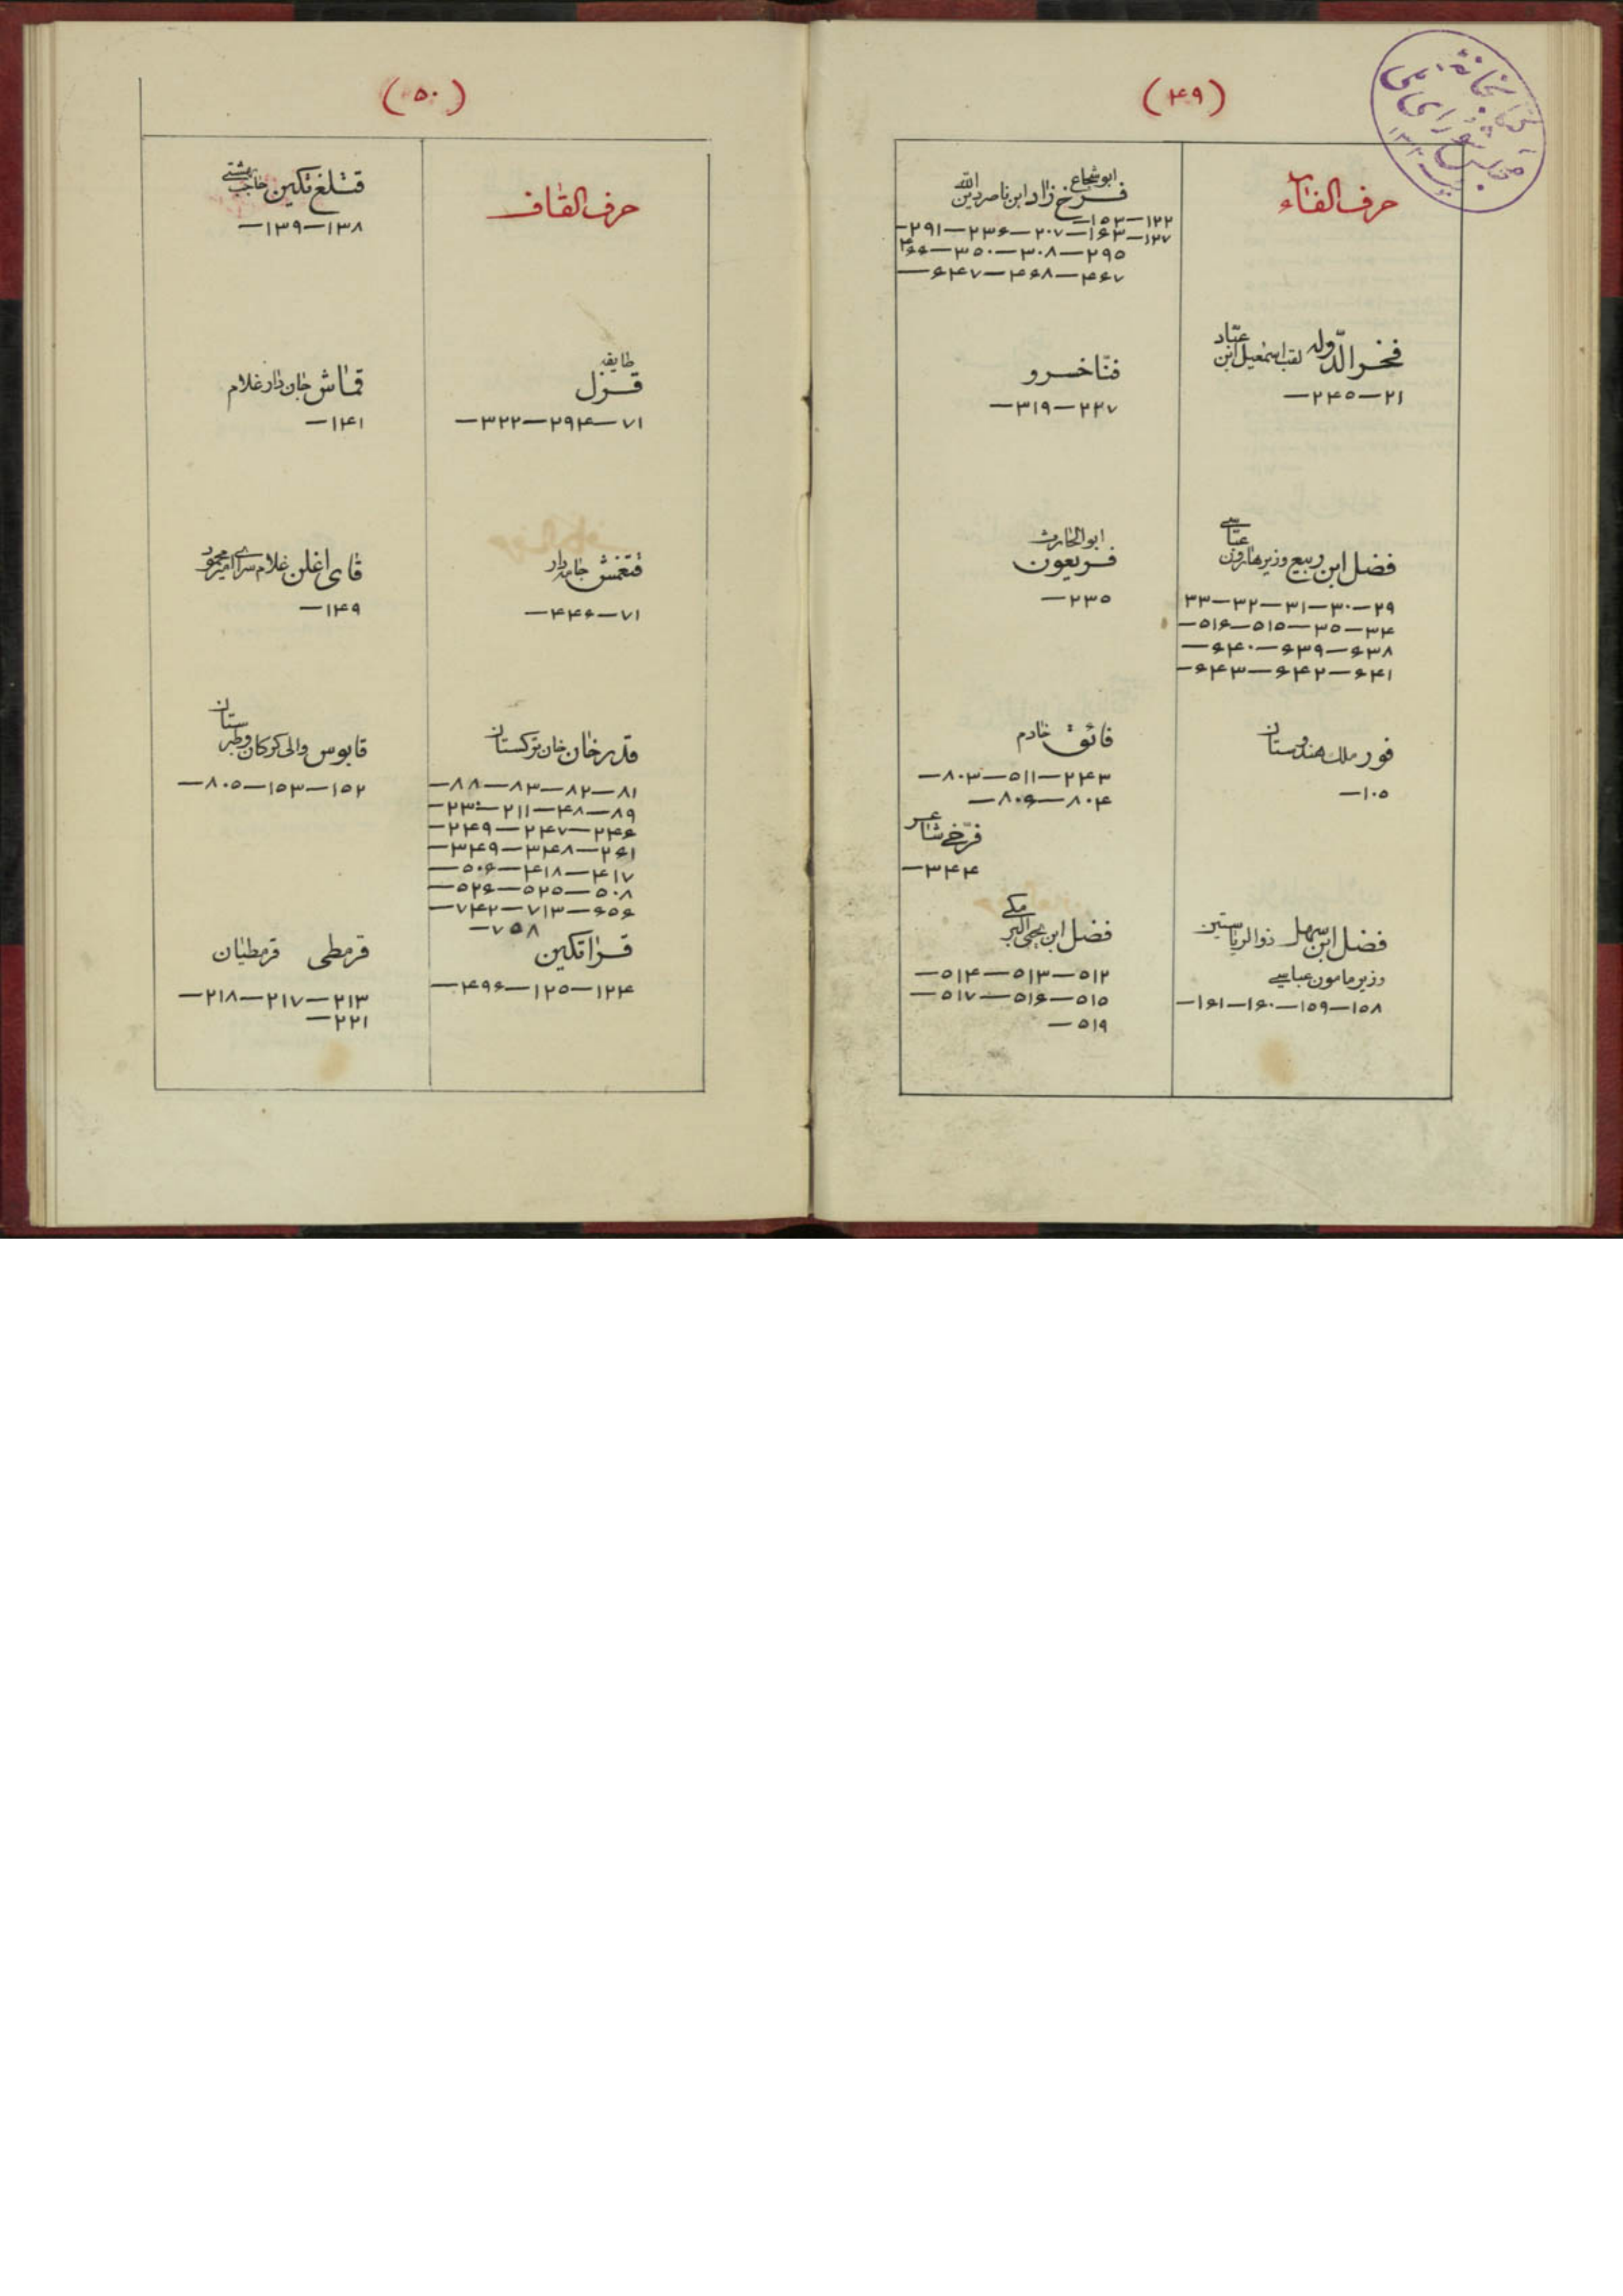 (۴۹)
حرف الفاء
فخر الدوله لقب اسمعیل ابن عبّاد
۲۱—۲۴۵—
فضل ابن ربیع وزیر هارون عبّاسی
۲۹—۳۰—۳۱—۳۲—۳۳
۳۴—۳۵—۵۱۵—۵۱۶—
۶۳۸—۶۳۹—۶۴۰—
۶۴۱—۶۴۲—۶۴۳—
فور ملک هندوستان
۱۰۵—
فضل ابن سهل ذوالریاستین
وزیر مامون عباسی
۱۵۸—۱۵۹—۱۶۰—۱۶۱—
ابوشجاع
فرخ زاد ابن ناصر دین الله
۱۲۲—۱۵۳—
۱۲۷—۱۶۳—۲۰۷—۲۳۶—۲۹۱—
۲۹۵—۳۰۸—۳۵۰—
۴۶۷—۴۶۸—۶۴۷—
فنّاخسرو
۲۲۷—۳۱۹—
ابوالحارث
فریعون
۲۳۵—
فائق خادم
۲۴۳—۵۱۱—۸۰۳—
۸۰۴—۸۰۶—
فرّخی شاعر
۳۴۴—
فضل ابن یحیی
۵۱۲—۵۱۳—۵۱۴—
۵۱۵—۵۱۶—۵۱۷—
۵۱۹—
(۵۰)
حرف القاف
طایفه
قزل
۷۱—۲۹۴—۳۲۲—
قتغمش جامه‌دار
۷۱—۴۴۶—
قدرخان خان ترکستان
۸۱—۸۲—۸۳—۸۸—
۸۹—۴۸—۲۱۱—۲۳۰—
۲۴۶—۲۴۷—۲۴۹—
۲۶۱—۳۴۸—۳۴۹—
۴۱۷—۴۱۸—۵۰۶—
۵۰۸—۵۲۵—۵۲۶—
۶۵۶—۷۱۳—۷۴۲—
۷۵۸—
قراتکین
۱۲۴—۱۲۵—۴۹۶—
قتلغ تکین حاجب بهشتی
۱۳۸—۱۳۹—
قماش جان دار غلام
۱۴۱—
قای اغلن غلام سرای امیر محمود
۱۴۹—
قابوس والی کرکان و طبرستان
۱۵۲—۱۵۳—۸۰۵—
قرمطی قرمطیان
۲۱۳—۲۱۷—۲۱۸—
۲۲۱—